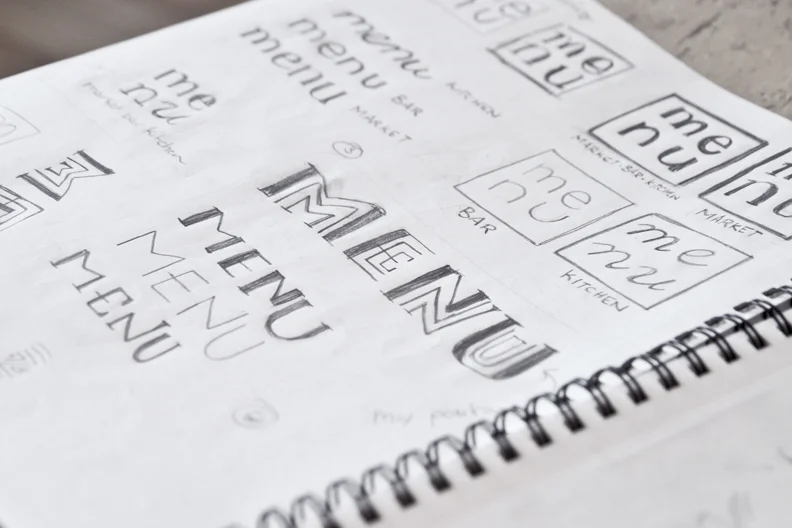 nu
menu
KITCHEN
menu
BAR
menu
MARKET
me
nu
me
nu
me
nu
MARKET·BAR·KITCHEN
me
nu
BAR
me
nu
KITCHEN
nu
MARKET
3
MENU
MENU
MENU
MENU
my